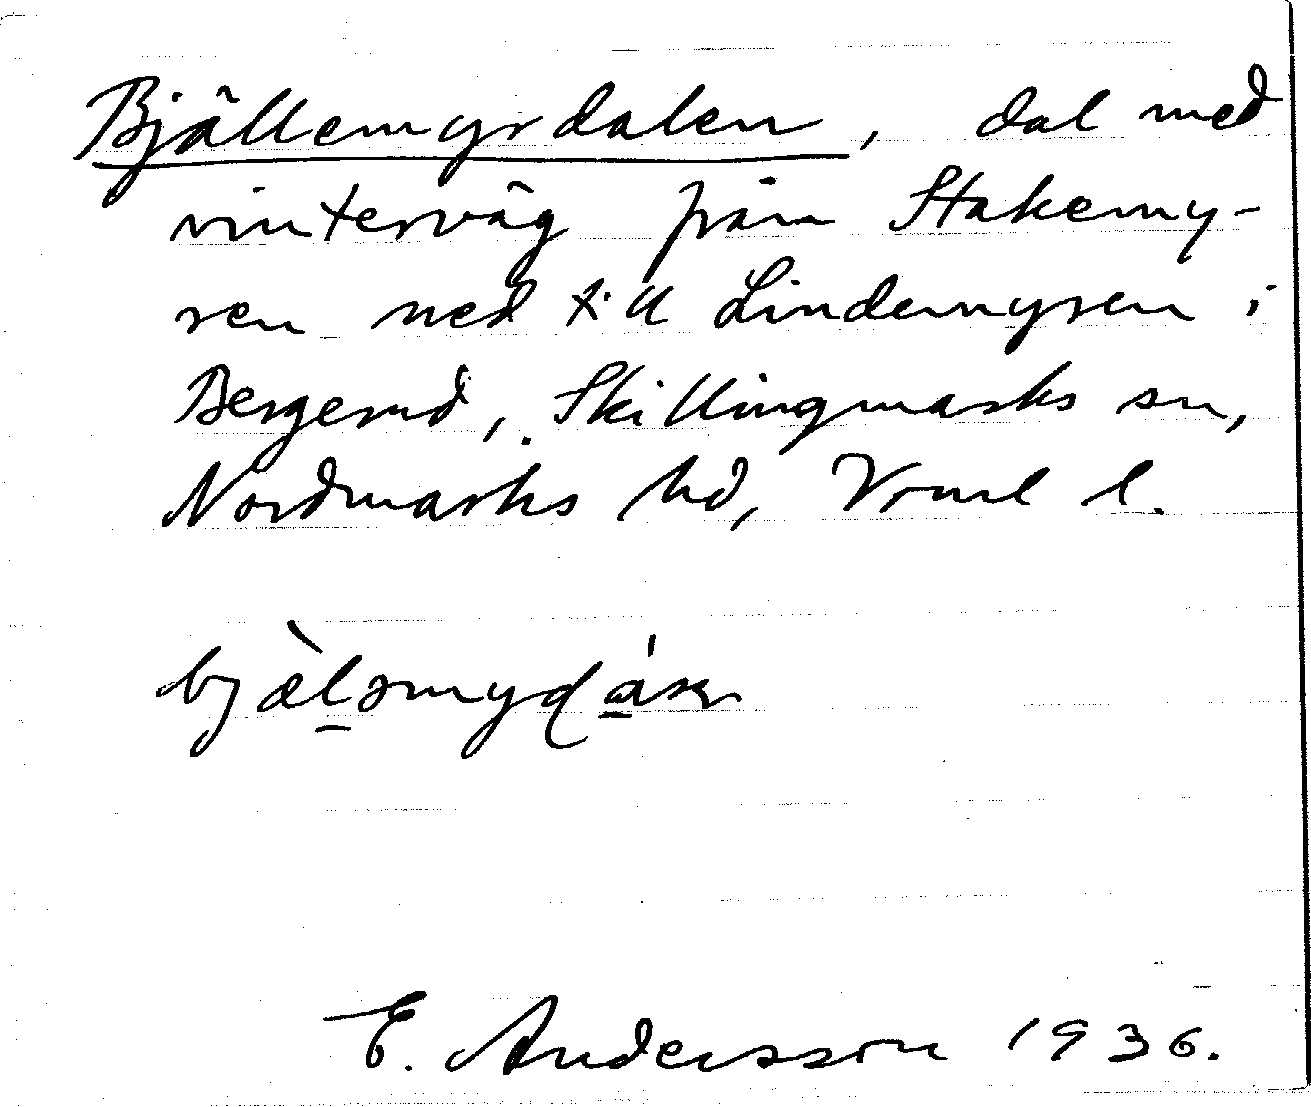 Bjällemyrdalen, dal med
vinterväg från Stakemy-
ren ned till Lindemyren i
Bergerud, Skillingmarks sn,
Nordmarks hd, Vrml l.
E. Andersson 1936.